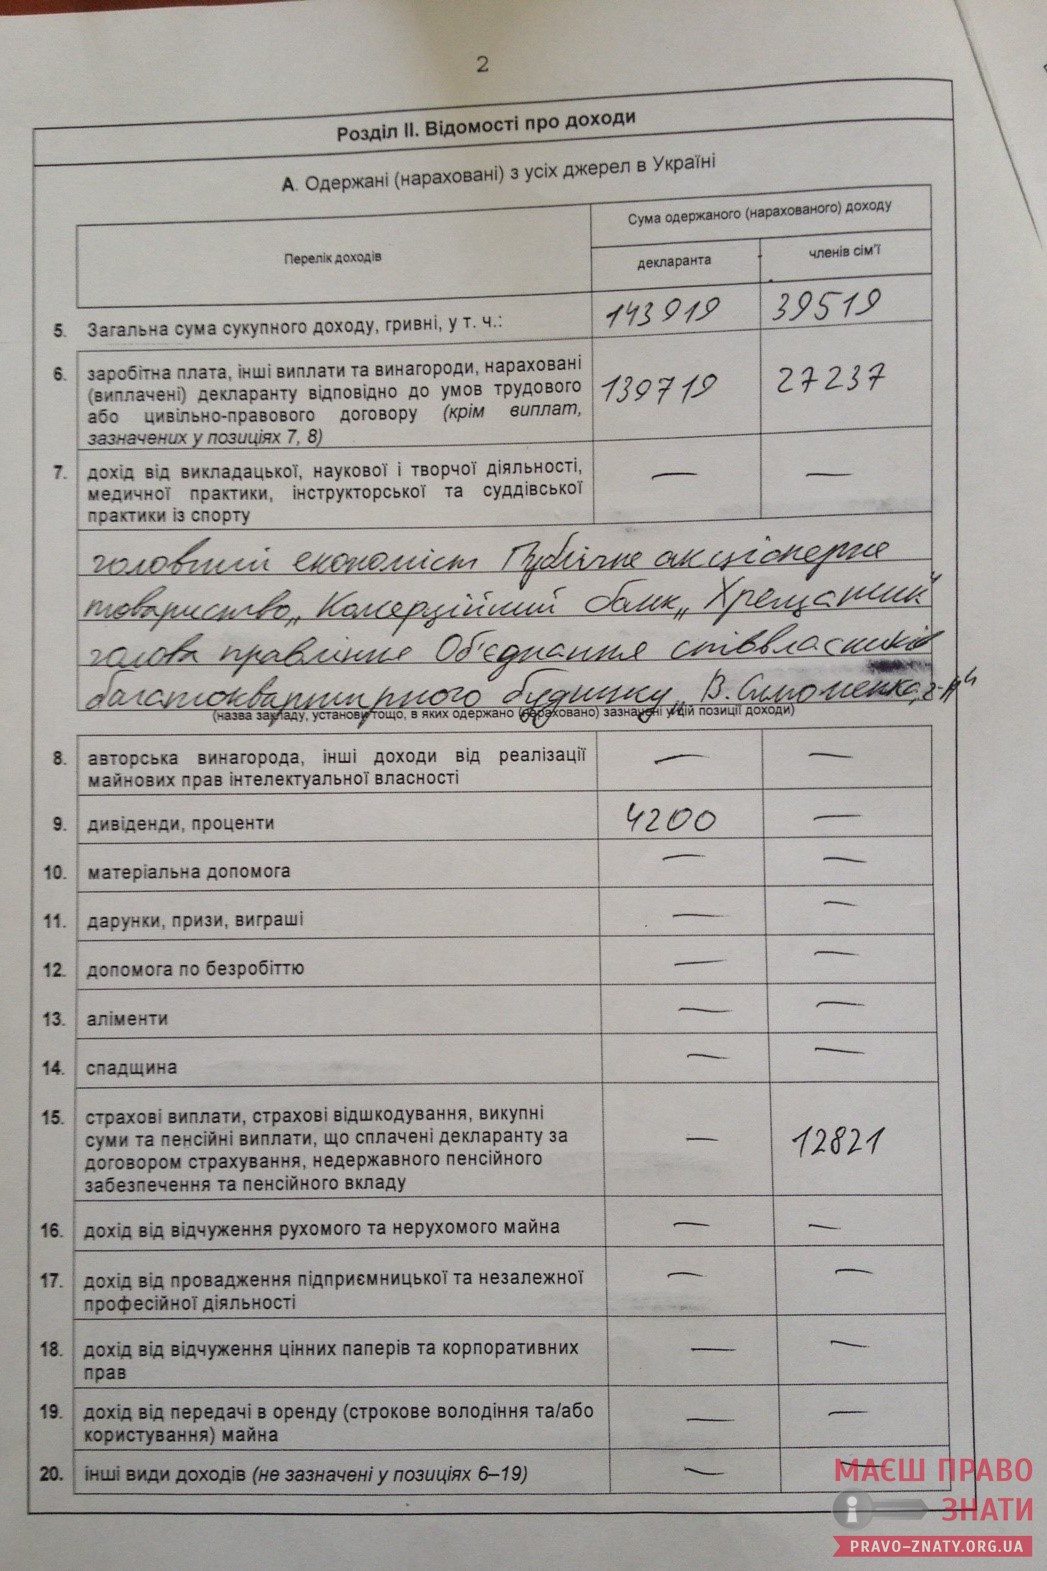 2
Розділ ІІ. Відомості про доходи
А. Одержані (нараховані) з усіх джерел в Україні
Перелік доходів
Сума одержаного (нарахованого) доходу
декларанта
членів сім’ї
5. Загальна сума сукупного доходу, гривні, у т. ч.: 143919 39519
6. заробітна плата, інші виплати та винагороди, нараховані
(виплачені) декларанту відповідно до умов трудового 139719 27237
або цивільно-правового договору (крім виплат,
зазначених у позиціях 7, 8)
7. дохід від викладацької, наукової і творчої діяльності, — —
медичної практики, інструкторської та суддівської
практики із спорту
головний економіст Публічне акціонерне
товариство „Комерційний банк „Хрещатик"
голова правління Об'єднання співвласників
багатоквартирного будинку „В. Симоненка,
(назва закладу, установи тощо, в яких одержано (нараховано) зазначені у цій позиції доходи)
8. авторська винагорода, інші доходи від реалізації — —
майнових прав інтелектуальної власності
9. дивіденди, проценти 4200 —
10. матеріальна допомога — —
11. дарунки, призи, виграші — —
12. допомога по безробіттю — —
13. аліменти — —
14. спадщина — —
15. страхові виплати, страхові відшкодування, викупні
суми та пенсійні виплати, що сплачені декларанту за — 12821
договором страхування, недержавного пенсійного
забезпечення та пенсійного вкладу
16. дохід від відчуження рухомого та нерухомого майна — —
17. дохід від провадження підприємницької та незалежної — —
професійної діяльності
18. дохід від відчуження цінних паперів та корпоративних — —
прав
19. дохід від передачі в оренду (строкове володіння та/або — —
користування) майна
20. інші види доходів (не зазначені у позиціях 6–19) — —
МАЄШ ПРАВО
ЗНАТИ
PRAVO-ZNATY.ORG.UA